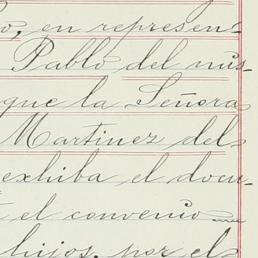 o, en represen-
Pablo del mis-
que la Señora
Martinez del
exhiba el docu-
el convenio
hijos, por el